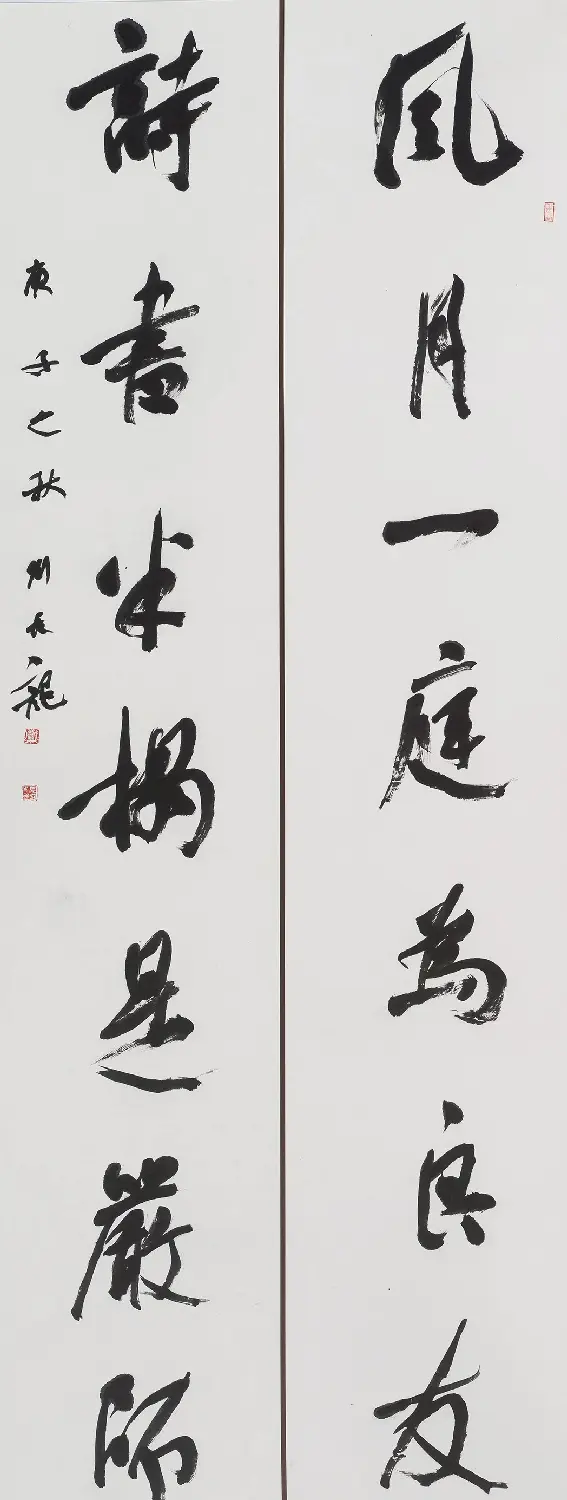 風月一庭為良友
詩書半榻是嚴師
庚子之秋